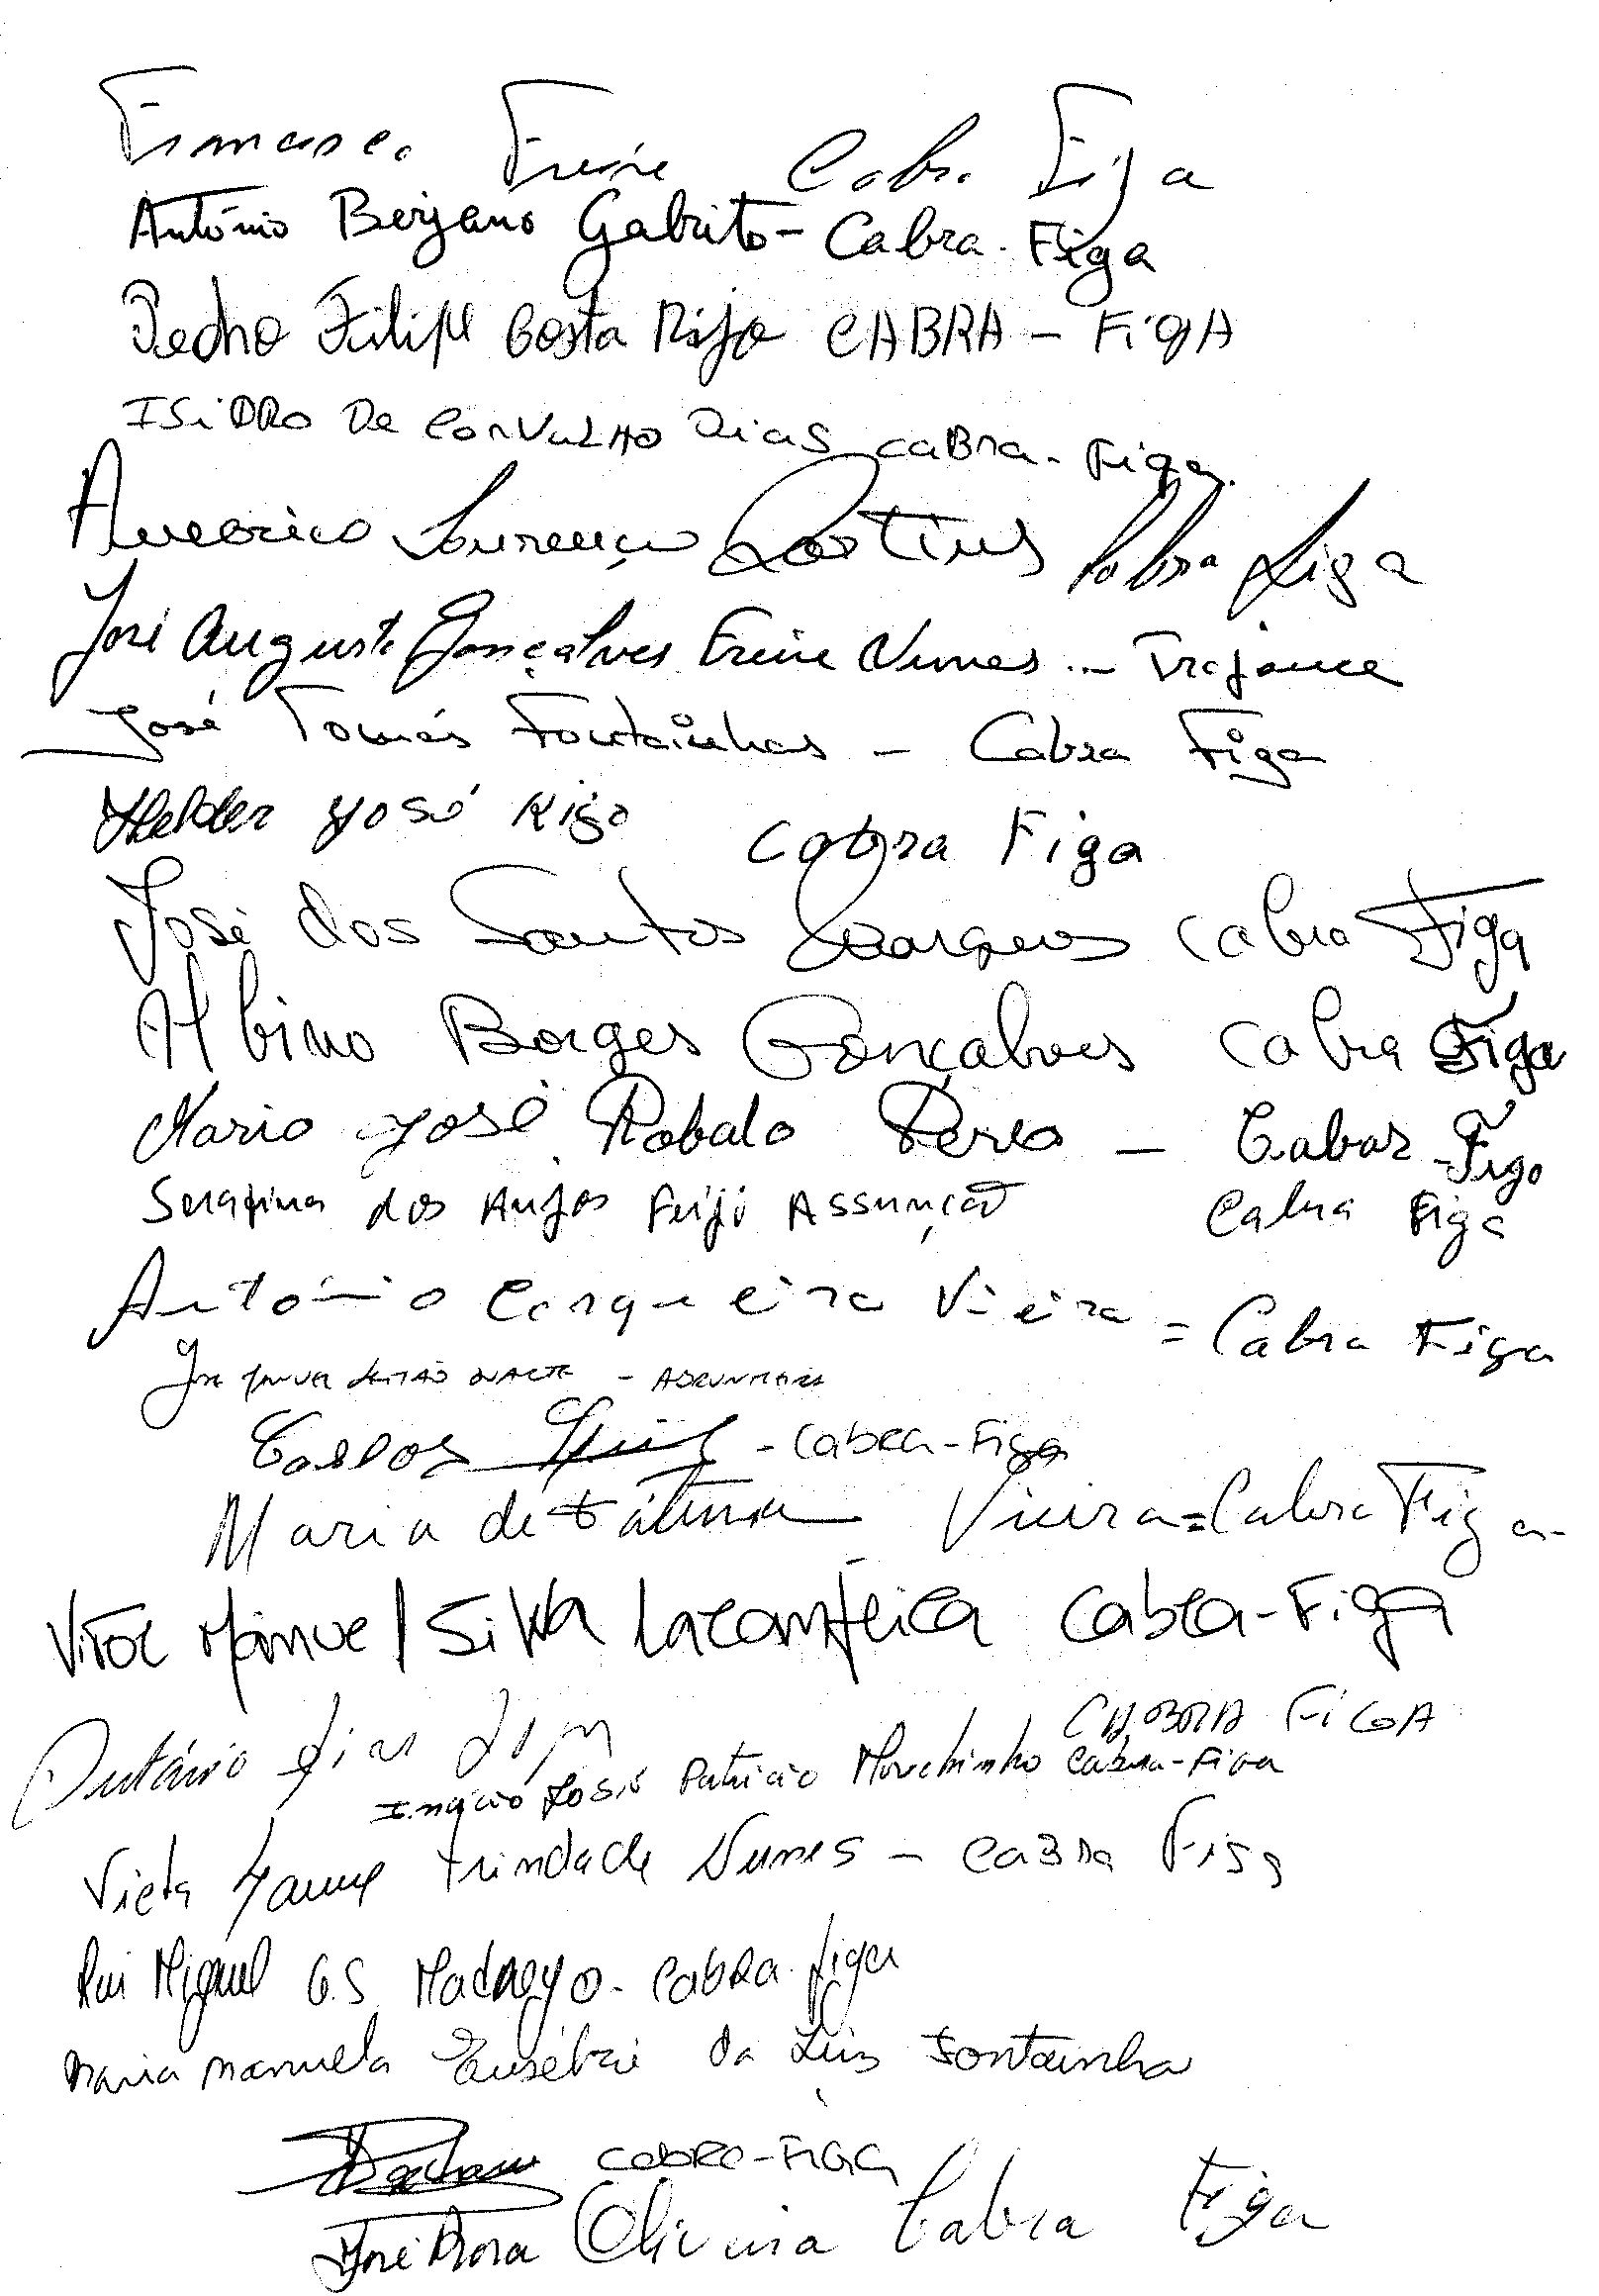 Francisco Freire Cabra Figa
António Berjano Gabrito - Cabra-Figa
Pedro Filipe Costa Rijo CABRA - FigA
ISiDRO De CarVaLHO DiaS CaBra-Figa
Americo Lourenço Martins Cabra Figa
José Augusto Gonçalves Freire Nunes - Trajouce
José Tomás Fontainhas - Cabra Figa
Helder José Rijo Cabra Figa
José dos Santos Marques Cabra Figa
Albino Borges Gonçalves Cabra Figa
Mario José Robalo - Cabar-Figo
Serafina dos Anjos Feijó Assunção Cabra Figa
António Cerqueira Vieira = Cabra Figa
José Manuel Leitão Duarte -
Carlos - Cabra-Figa
Maria de Fátima Vieira = Cabra Figa -
Vitor Manuel Silva Cabra-Figa
Dias CABRA FiGA
Inácio José Patricio Cabra-Figa
Trindade Nunes - CaBRa Figa
Rui Miguel G.S. - Cabra-figa
Maria Manuela Eusébio da Luz Fontainha
Cabra-Figa
José Rosa Oliveira Cabra Figa